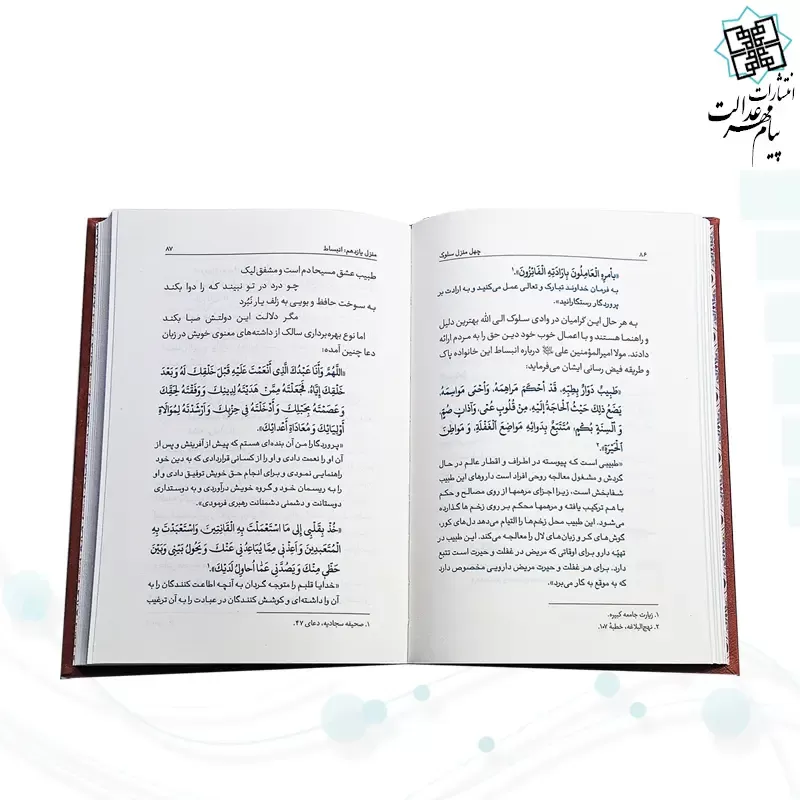 انتشارات
پیام مهر عدالت
۸۶
چهل منزل سلوک
«بِأَمرِهِ الْعَامِلُونَ بِإِرَادَتِهِ الْفَائِزُونَ».۱
به فرمان خداوند تبارک و تعالی عمل می‌کنید و به ارادت بر
پروردگار رستگارانید».
به هر حال این گرامیان در وادی سلوک الی الله بهترین دلیل
و راهنما هستند و با اعمال خوب خود دین حق را به مردم ارائه
دادند. مولا امیرالمؤمنین علی درباره انبساط این خانواده پاک
و طریقه فیض رسانی ایشان می‌فرماید:
«طَبِيبٌ دَوَّارٌ بِطِبِّهِ، قَدْ أَحْكَمَ مَرَاهِمَهُ، وَ أَحْمَى مَوَاسِمَهُ،
يَضَعُ ذلِكَ حَيْثُ الْحَاجَةُ إِلَيْهِ، مِنْ قُلُوبٍ عُمْيٍ، وَ آذَانٍ صُمٍّ،
وَ أَلْسِنَةٍ بُكْمٍ، مُتَتَبِّعٌ بِدَوَائِهِ مَوَاضِعَ الْغَفْلَةِ، وَ مَوَاطِنَ
الْحَيْرَةِ».۲
«طبیبی است که پیوسته در اطراف و اقطار عالم در حال
گردش و مشغول معالجه روحی افراد است داروهای این طبیب
شفابخش است، زیرا اجزای مرهمها از روی مصالح و حکم
با هم ترکیب یافته و مرهمها محکم بر روی زخم ها گذارده
می‌شود. این طبیب محل زخم‌ها را التیام می‌دهد دل‌های کور،
گوش‌های کر و زبان‌های لال را معالجه می‌کند. این طبیب در
تهیّه دارو برای اوقاتی که مریض در غفلت و حیرت است تتبع
دارد. برای هر غفلت و حیرت مریض دارویی مخصوص دارد
که به موقع به کار می‌برد».
۱. زیارت جامعه کبیره.
۲. نهج‌البلاغه، خطبهٔ ۱۰۷.
منزل یازدهم: انبساط
۸۷
طبیب عشق مسیحا دم است و مشفق لیک
چو درد در تو نبیند که را دوا بکند
به سوخت حافظ و بویی به زلف یار نبُرد
مگر دلالت این دولتش صبا بکند
اما نوع بهره‌برداری سالک از داشته‌های معنوی خویش در زبان
دعا چنین آمده:
«اَللّهُمَّ وَ أَنَا عَبْدُكَ الَّذِي أَنْعَمْتَ عَلَيْهِ قَبْلَ خَلْقِكَ لَهُ وَ بَعْدَ
خَلْقِكَ إِيَّاهُ، فَجَعَلْتَهُ مِمَّنْ هَدَيْتَهُ لِدِينِكَ وَ وَفَّقْتَهُ لِحَقِّكَ
وَ عَصَمْتَهُ بِحَبْلِكَ وَ أَدْخَلْتَهُ فِي حِزْبِكَ وَ أَرْشَدْتَهُ لِمُوَالَاةِ
أَوْلِيَائِكَ وَ مُعَادَاةِ أَعْدَائِكَ».
«پروردگارا من آن بنده‌ای هستم که پیش از آفرینش و پس از
آن او را نعمت دادی و او را از کسانی قراردادی که به دین خود
راهنمایی نمودی و برای انجام حق خویش توفیق دادی و او
را به ریسمان خود و گروه خویش درآوردی و به دوستداری
دوستانت و دشمنی دشمنانت رهبری فرمودی».
«خُذْ بِقَلْبِي إِلَى مَا اسْتَعْمَلْتَ بِهِ الْقَانِتِينَ، وَ اسْتَعْبَدْتَ بِهِ
الْمُتَعَبِّدِينَ وَ أَعِذْنِي مِمَّا يُبَاعِدُنِي عَنْكَ وَ يَحُولُ بَيْنِي وَ بَيْنَ
حَظِّي مِنْكَ وَ يَصُدُّنِي عَمَّا أُحَاوِلُ لَدَيْكَ».۱
«خدایا قلبم را متوجه گردان به آنچه اطاعت کنندگان را به
آن وا داشته‌ای و کوشش کنندگان در عبادت را به آن ترغیب
۱. صحیفه سجادیه، دعای ۴۷.